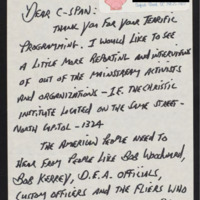 DEAR C-SPAN:
THANK YOU FOR YOUR TERRIFIC
PROGRAMMING. I WOULD LIKE TO SEE
A LITTLE MORE REPORTING AND INTERVIEWS
OF OUT OF THE MAINSTREAM ACTIVISTS
AND ORGANIZATIONS - I.E. THE CHRISTIC
INSTITUTE LOCATED ON THE SAME STREET -
NORTH CAPITOL - 1324
THE AMERICAN PEOPLE NEED TO
HEAR FROM PEOPLE LIKE BOB WOODWARD,
BOB KERREY, D.E.A. OFFICIALS,
CUSTOM OFFICERS AND THE FLIERS WHO